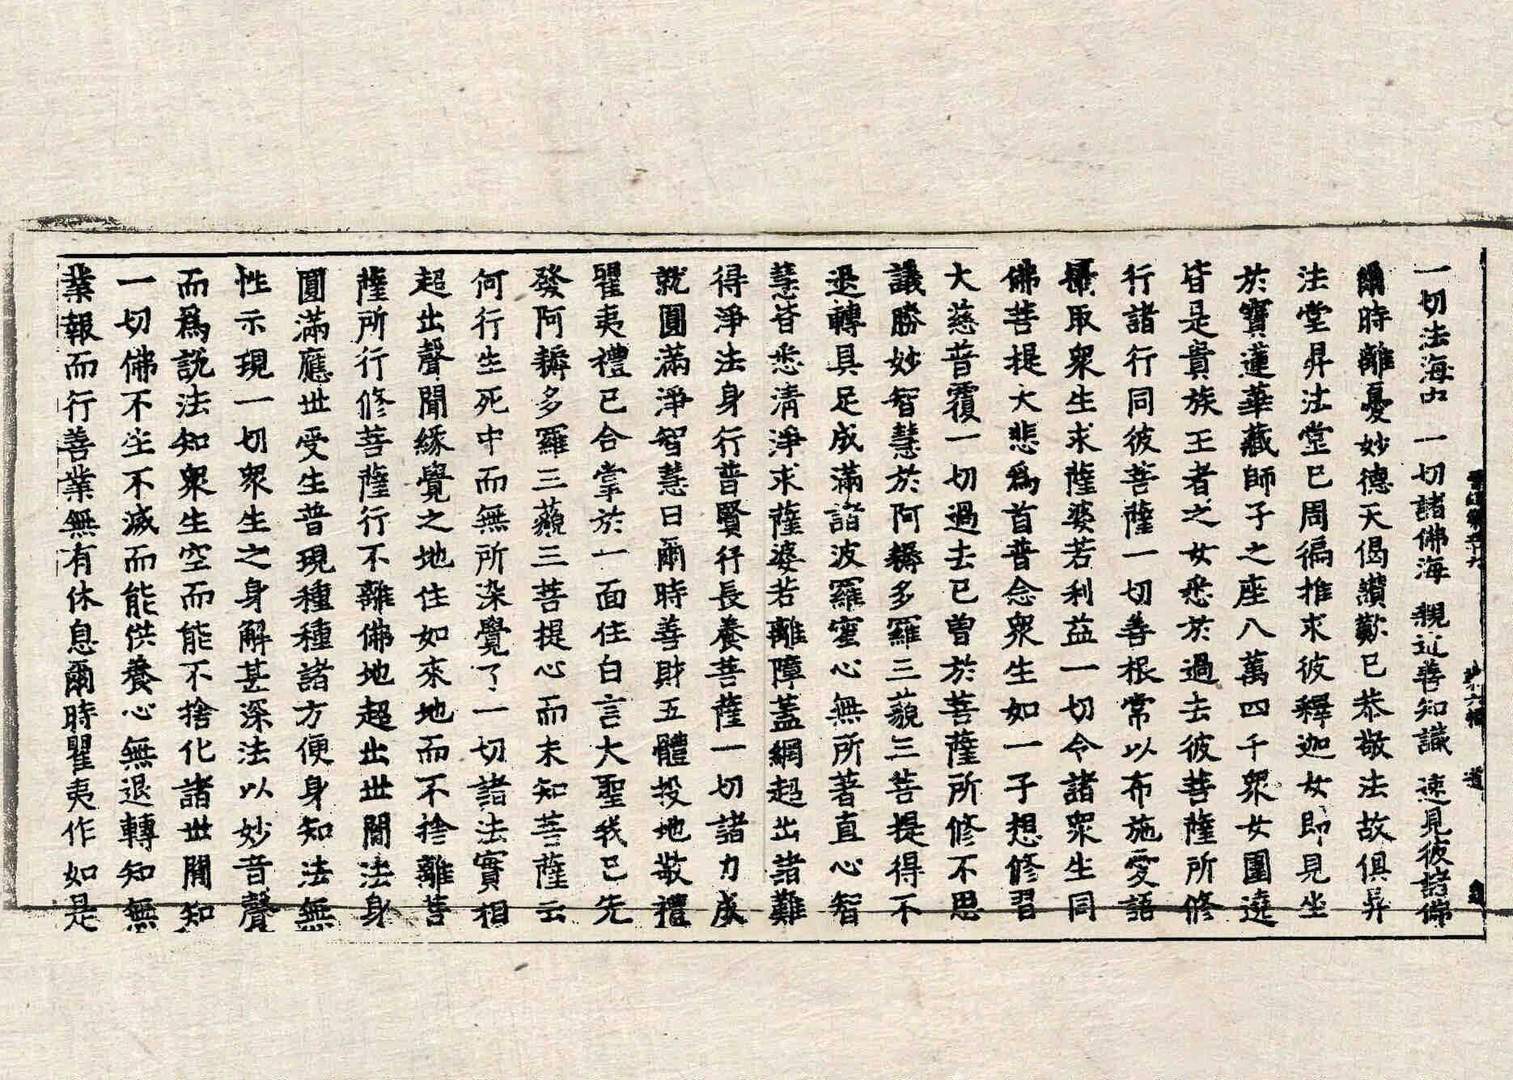 一切法海中　一切諸佛海　親近善知識　速見彼諸佛
爾時離憂妙德天偈讚歎已恭敬法故俱昇
法堂昇法堂已周徧推求彼釋迦女即見坐
於寶蓮華藏師子之座八萬四千衆女圍遶
皆是貴族王者之女悉於過去彼菩薩所修
行諸行同彼菩薩一切善根常以布施愛語
攝取衆生求薩婆若利益一切令諸衆生同
佛菩提大悲爲首普念衆生如一子想修習
大慈普覆一切過去已曽於菩薩所修不思
議勝妙智慧於阿耨多羅三藐三菩提得不
退轉具足成滿諸波羅蜜心無所著直心智
慧皆悉清淨求薩婆若離障蓋網超出諸難
得淨法身行普賢行長養菩薩一切諸力成
就圓滿淨智慧日爾時善財五體投地敬禮
瞿夷禮已合掌於一面住白言大聖我已先
發阿耨多羅三藐三菩提心而未知菩薩云
何行生死中而無所染覺了一切諸法實相
超出聲聞緣覺之地住如來地而不捨離菩
薩所行修菩薩行不離佛地超出世間法身
圓滿應世受生普現種種諸方便身知法無
性示現一切衆生之身解甚深法以妙音聲
而爲説法知衆生空而能不捨化諸世間知
一切佛不生不滅而能供養心無退轉知無
業報而行善業無有休息爾時瞿夷作如是